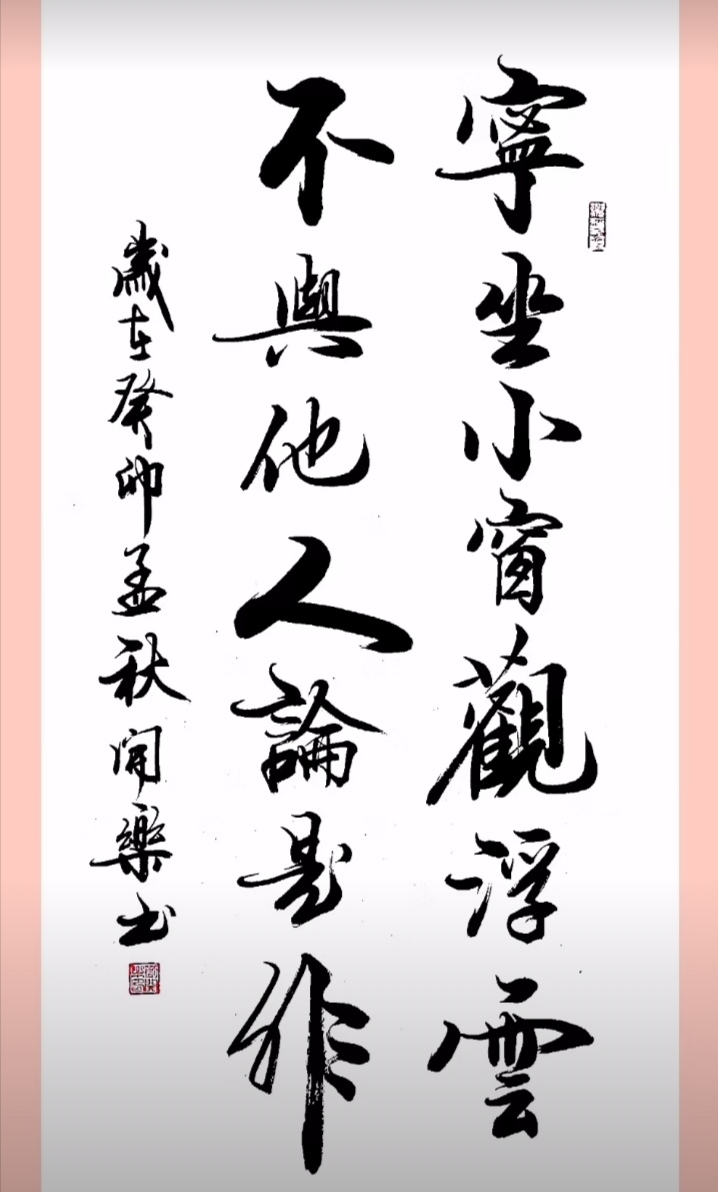 寧坐小窗觀浮雲
不與他人論是非
歲在癸卯孟秋開樂書